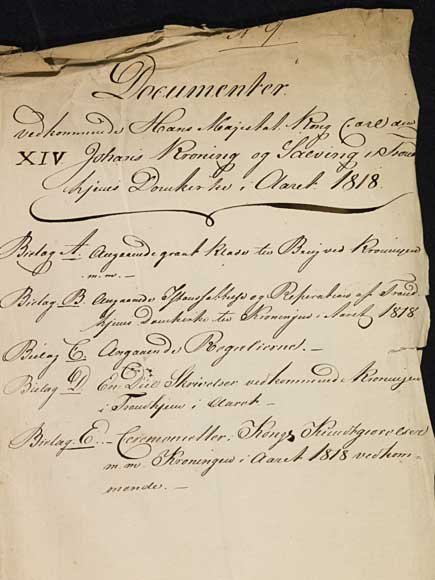 N 9
Documenter
vedkommende Hans Majestæt Kong Carl den
XIV Johans Kroning og Salving i Trond
hjems Domkerke i Aaret 1818.
Bielag A. Angaaende grønt Klæde til Brug ved Kroningen
m.m. —
Bielag B. Angaaende Istandsættelse og Reperation af Trond
hjems Domkerke til Kroningen i Aaret 1818
Bielag C. Angaaende Regalierne. —
Bielag D. En Deel Skrivelser vedkommende Kroningen
i Trondhjem i Aaret —
Bielag E. — Ceremonieller, Kongl. Kundgiørelser
m.m. Kroningen i Aaret 1818 vedkom-
mende. —